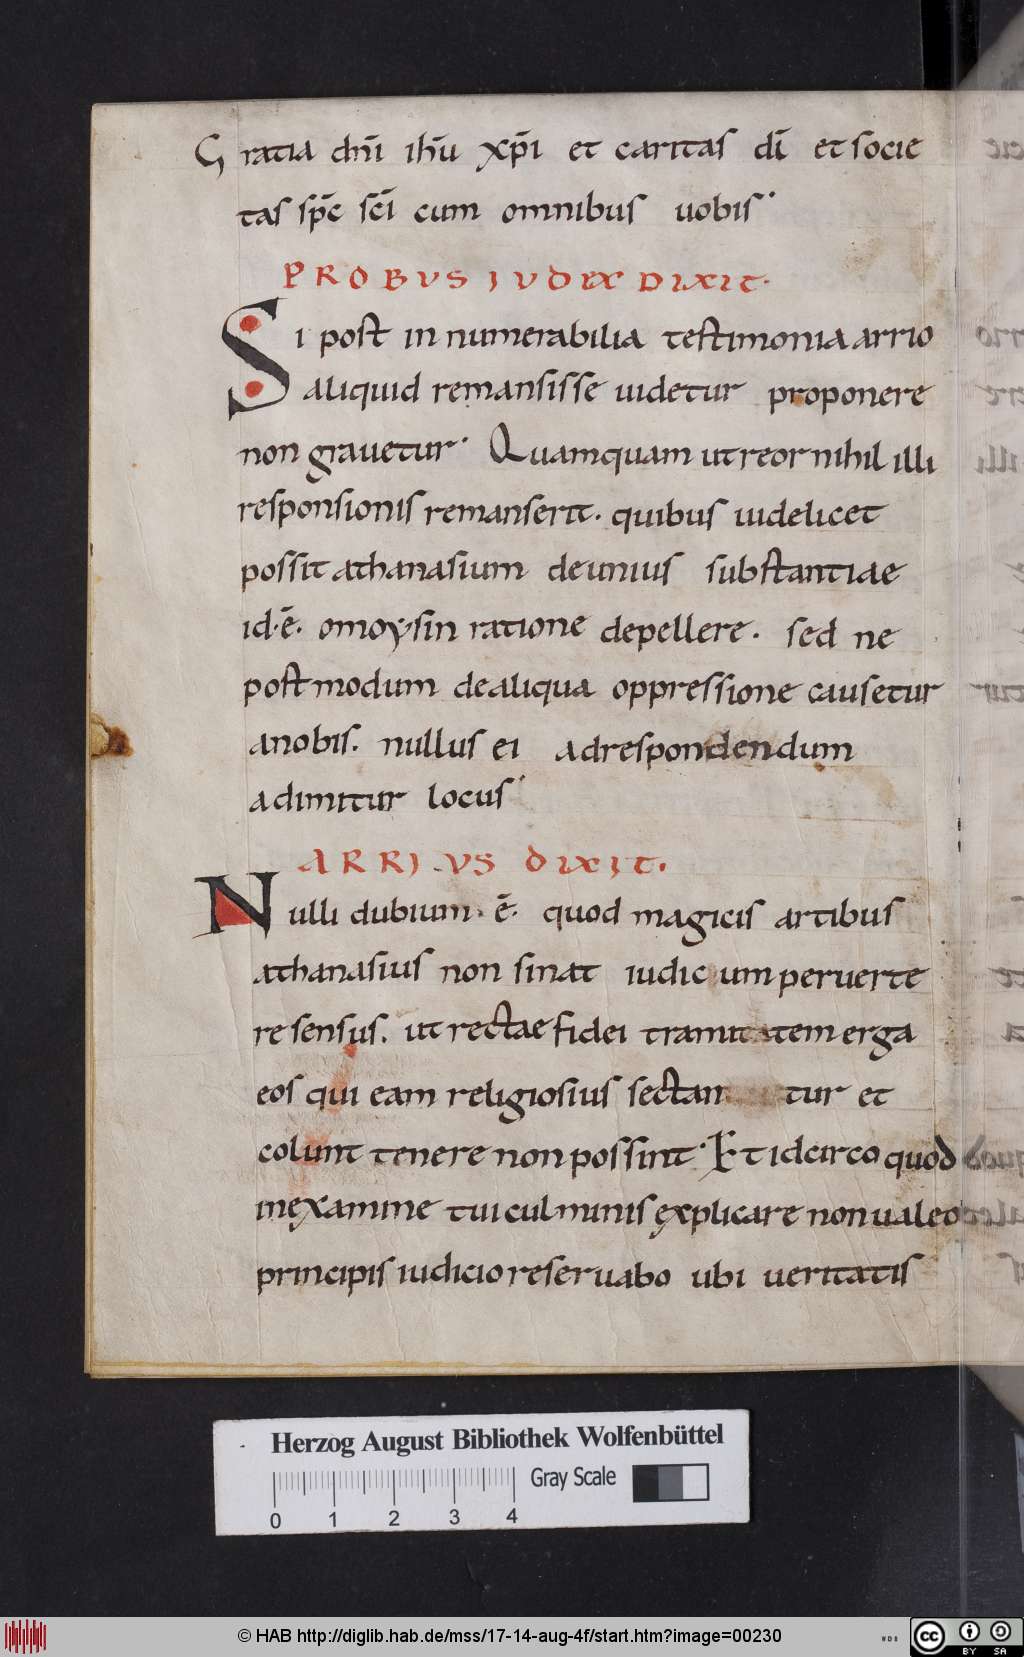 Gratia dn̄i ihū xp̄i et caritas dī et socie
tas sp̄c sc̄i cum omnibus uobis.
PROBVS IVDEX DIXIT.
Si post in numerabilia testimonia arrio
aliquid remansisse uidetur proponere
non grauetur. Quamquam ut reor nihil illi
responsionis remanserit. quibus uidelicet
possit athanasium de unius substantiae
id.ē. omoysin ratione depellere. sed ne
postmodum de aliqua oppressione causetur
a nobis. nullus ei ad respondendum
adimitur locus
ARRIVS DIXIT.
Nulli dubium.ē. quod magicis artibus
athanasius non sinat iudicum peruerte
re sensus. ut rectae fidei tramitem erga
eos qui eam religiosius sectantur et
colunt tenere non possint. Et idcirco quod
in examine tui culminis explicare non ualeo
principis iudicio reseruabo ubi ueritatis
Herzog August Bibliothek Wolfenbüttel
Gray Scale
0 1 2 3 4
© HAB http://diglib.hab.de/mss/17-14-aug-4f/start.htm?image=00230
WDB
cc BY SA